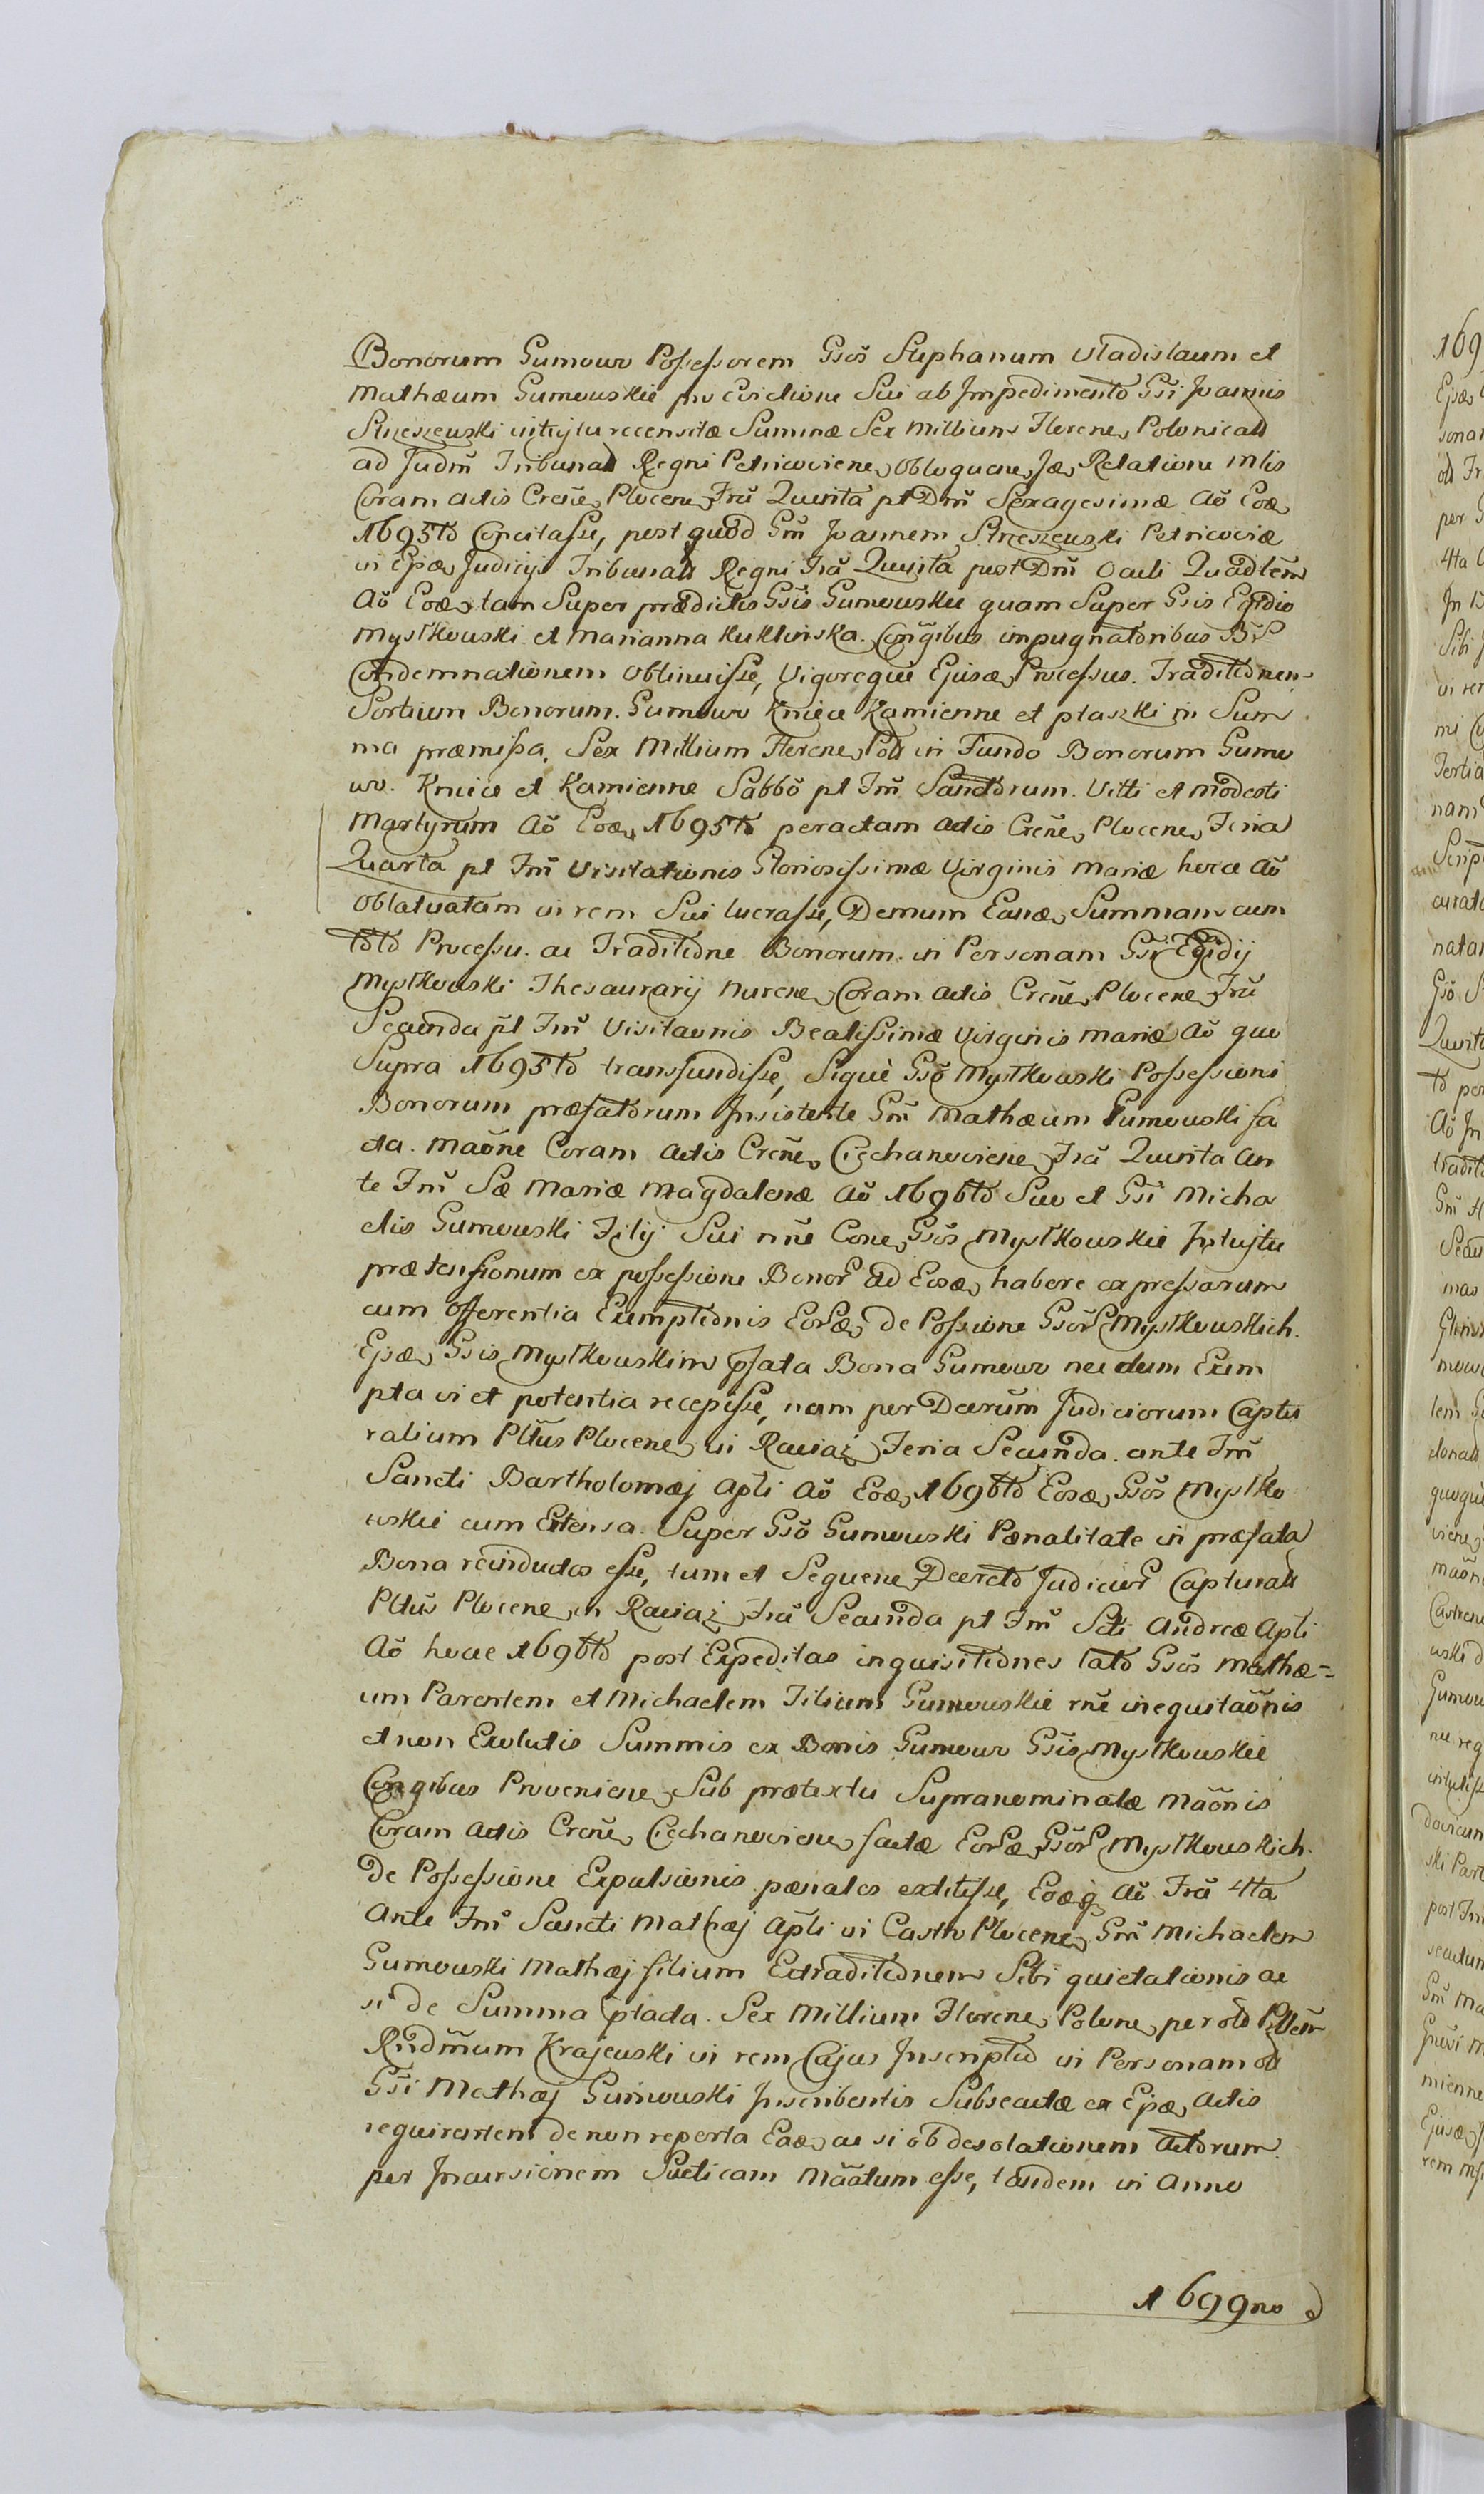 Bonorum Gumowo Possessorem Gsos Stephanum Vladislaum et
Mathæum Gumowskie pro Evictione Sui ab Impedimento Gsi Joannis
Strzeszewski intuitu recensitæ Summæ Sex Millium Floren, Polonicall
ad Judm Tribunall Regni Petricovien, Obloquen, Jæ, Relatione Mlis
Coram Actis Cren, Plocen, Fra Quinta pt Dm Sexagesimæ Ao Eoæ,
1695to Concitasse, post quod Gm Joannem Strzeszewski Petricoviæ
in Ejsæ, Judicijs Tribunall Regni Fra Quinta post Dm Oculi Quadlem
Ao Eoæ, tam Super prædictis Gsis Gumowskie quam Super Gsis Egidio
Mystkowski et Marianna Kuklinska Congibus impugnatoribus
Condemnationem obtinuisse, Vigoreque Ejusæ, Processus Traditionem
Sortium Bonorum Gumowo Kniece Kamienne et ptaszki in Sum
ma præmissa Sex Millium Floren, Poll in Fundo Bonorum Gumo
wo Kniece et Kamienne Sabbo pt Fm Sanctorum Vitti et Modesti
Martyrum Ao Eoæ, 1695to peractam Actis Cren, Plocen, Feria
Quarta pt Fm Visitationis Gloriosissimæ Virginis Mariæ hoce Ao
Oblatvatam in rem Sui lucrasse, Demum Eanæ, Summam cum
toto Processu ac Traditione Bonorum in Personam Gsi Egidij
Mystkowski Thesaurarij Nuren, Coram Actis Cren, Plocen, Fra
Secunda pt Fm Visitaonis Beatissimæ Virginis Mariæ Ao quo
Supra 1695to transfundisse, Sique Gso Mystkowski Possessioni
Bonorum præfatorum Insistente Gm Mathæum Gumowski fa
cta Maone Coram Actis Cren, Ciechanovien, Fra Quinta An
te Fm Sæ Mariæ Magdalenæ Ao 1696to Suo et Gsi Micha
elis Gumowski Filij Sui nne Cone, Gsos Mystkowskie Intuitu
prætensionum ex possessione Bonor ad Eosæ, habere expressarum
cum Offerentia Exemptionis Eoræ, de Possione Gsor Mystkowskich
Ejsæ, Gsis Mystkowskim pfata Bona Gumowo nec dum Exem
pta vi et potentia recepisse, nam per Dcrum Judiciorum Captu
ralium Pltus Plocen, in Raciąż Feria Secunda ante Fm
Sancti Bartholomæj Apli Ao Eoæ, 1696to Eosæ, Gsos Mystko
wskie cum Extensa Super Gso Gumowski Pænalitate in præfata
Bona reinductos esse, tum et Sequen, Decreto Judicior Capturall
Pltus Plocen, in Raciąż Fra Secunda pt Fm Scti Andreæ Apli
Ao hoce 1696to post Expeditas inquisitiones lato Gsos Mathæ=
um Parentem et Michaelem Filium Gumowskie rne inequitaonis
et non Exolutis Summis ex Bonis Gumowo Gsis Mystkowskie
Congibus Provenien, Sub prætextu Supranominatæ Maonis
Coram Actis Cren, Ciechanovien, factæ Eoræ, Gsor Mystkowskich
de Possessione Expulsionis pænales extitisse, Eoæq, Ao Fra 4ta
Ante Fm Sancti Mathæj Apli in Castro Plocen, Gm Michaelem
Gumowski Mathæj filium Extraditionem Sibi quietationis ac
si de Summa ptacta Sex Millium Floren, Polon, per olb
Rndmum Krajewski in rem Cajus Inscripto in Personam oli
Gsi Mathæj Gumowski Inscribentis Subsecutæ ex Ejsæ, Actis
requirentem de non reperta Eaæ, ac si ob desolationem Actorum
per Incursionem Sueticam Maatum esse, tandem in Anno
1699no